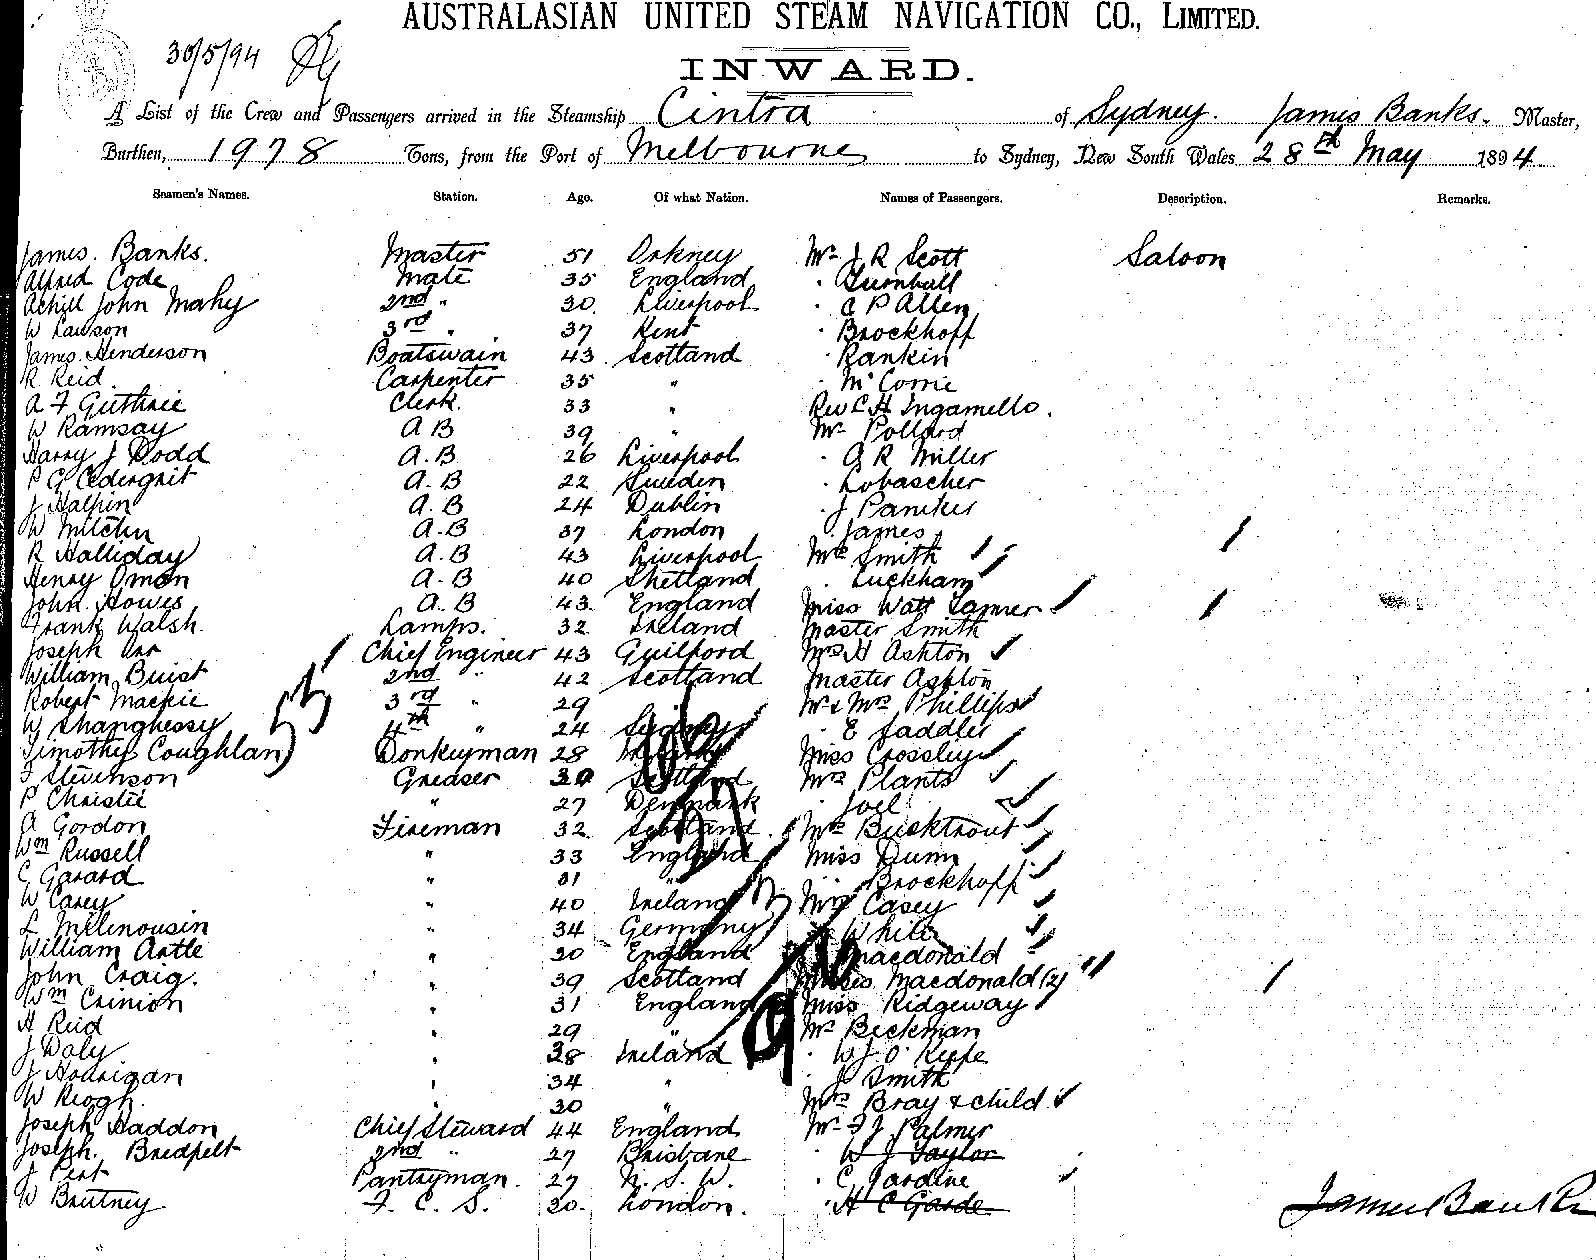 AUSTRALASIAN UNITED STEAM NAVIGATION CO., LIMITED.
30/5/94
INWARD.
A List of the Crew and Passengers arrived in the Steamship Cintra of Sydney. James Banks. Master,
Burthen, 1978 Tons, from the Port of Melbourne to Sydney, New South Wales 28th May 1894
Seamen's Names. Station. Age. Of what Nation. Names of Passengers. Description. Remarks.
James. Banks. Master 51 Orkney Mr J R Scott Saloon
Alfred Code Mate 35 England " Turnbull
Achill John Mahy 2nd " 30. Liverpool " C P Allen
W Lawson 3rd " 37 Kent " Brockhoff
James Henderson Boatswain 43 Scotland " Rankin
R Reid Carpenter 35 " " McCorrie
A F Guthrie Clerk. 33 " Rev C H Ingamells.
W Ramsay A B 39 " Mr Pollard
Harry J Dodd A.B 26 Liverpool " G R Miller
P G Cedergnit A.B 22 Sweden " Lobascher
J Halpin A.B 24 Dublin " J Paniker
W Mitchn A.B 37 London James
R Halliday A.B 43 Liverpool Mrs Smith
Henry Oman A.B 40 Shetland " Luckham
John Howes A.B 43. England Miss Watt Tanner
Frank Walsh. Lamps. 32 Ireland Master Smith
Joseph Orr Chief Engineer 43 Guilford Mrs H Ashton
William Buist 2nd " 42 Scotland Master Ashton
Robert Mackie 3rd " 29 Mr & Mrs Phillips
W Shanghessy 4th " 24 Sydney " E Saddler
Timothy Coughlan Donkeyman 28 Miss Crossley
Stevenson Greaser 30 Scotland Mrs Plants
P Christie " 27 Denmark " Joel
A Gordon Fireman 32 Scotland Mrs Bucktrout
Wm Russell " 33 England Miss Dunn
C Garard " 31 " Brockhoff
W Casey " 40 Ireland Mrs Casey
L Millenousin " 34 Germany White
William Antle " 30 England Macdonald
John Craig. " 39 Scotland Misses Macdonald (2)
Wm Crinion " 31 England Miss Ridgeway
H Reid " 29 " Mr Beckman
J Daly " 38 Ireland " W J O'Keefe
J Hourigan " 34 " J Smith
W Keogh. 30 " Mrs Bray & child
Joseph Haddon Chief Steward 44 England Mr F J Palmer
Joseph. Bredfelt 2nd " 27 Brisbane " W J Taylor
J Pert Pantryman. 27 N. S. W. " C Jardine
W Brittney F. C. S. 30. London. " H C Garde
James Banks